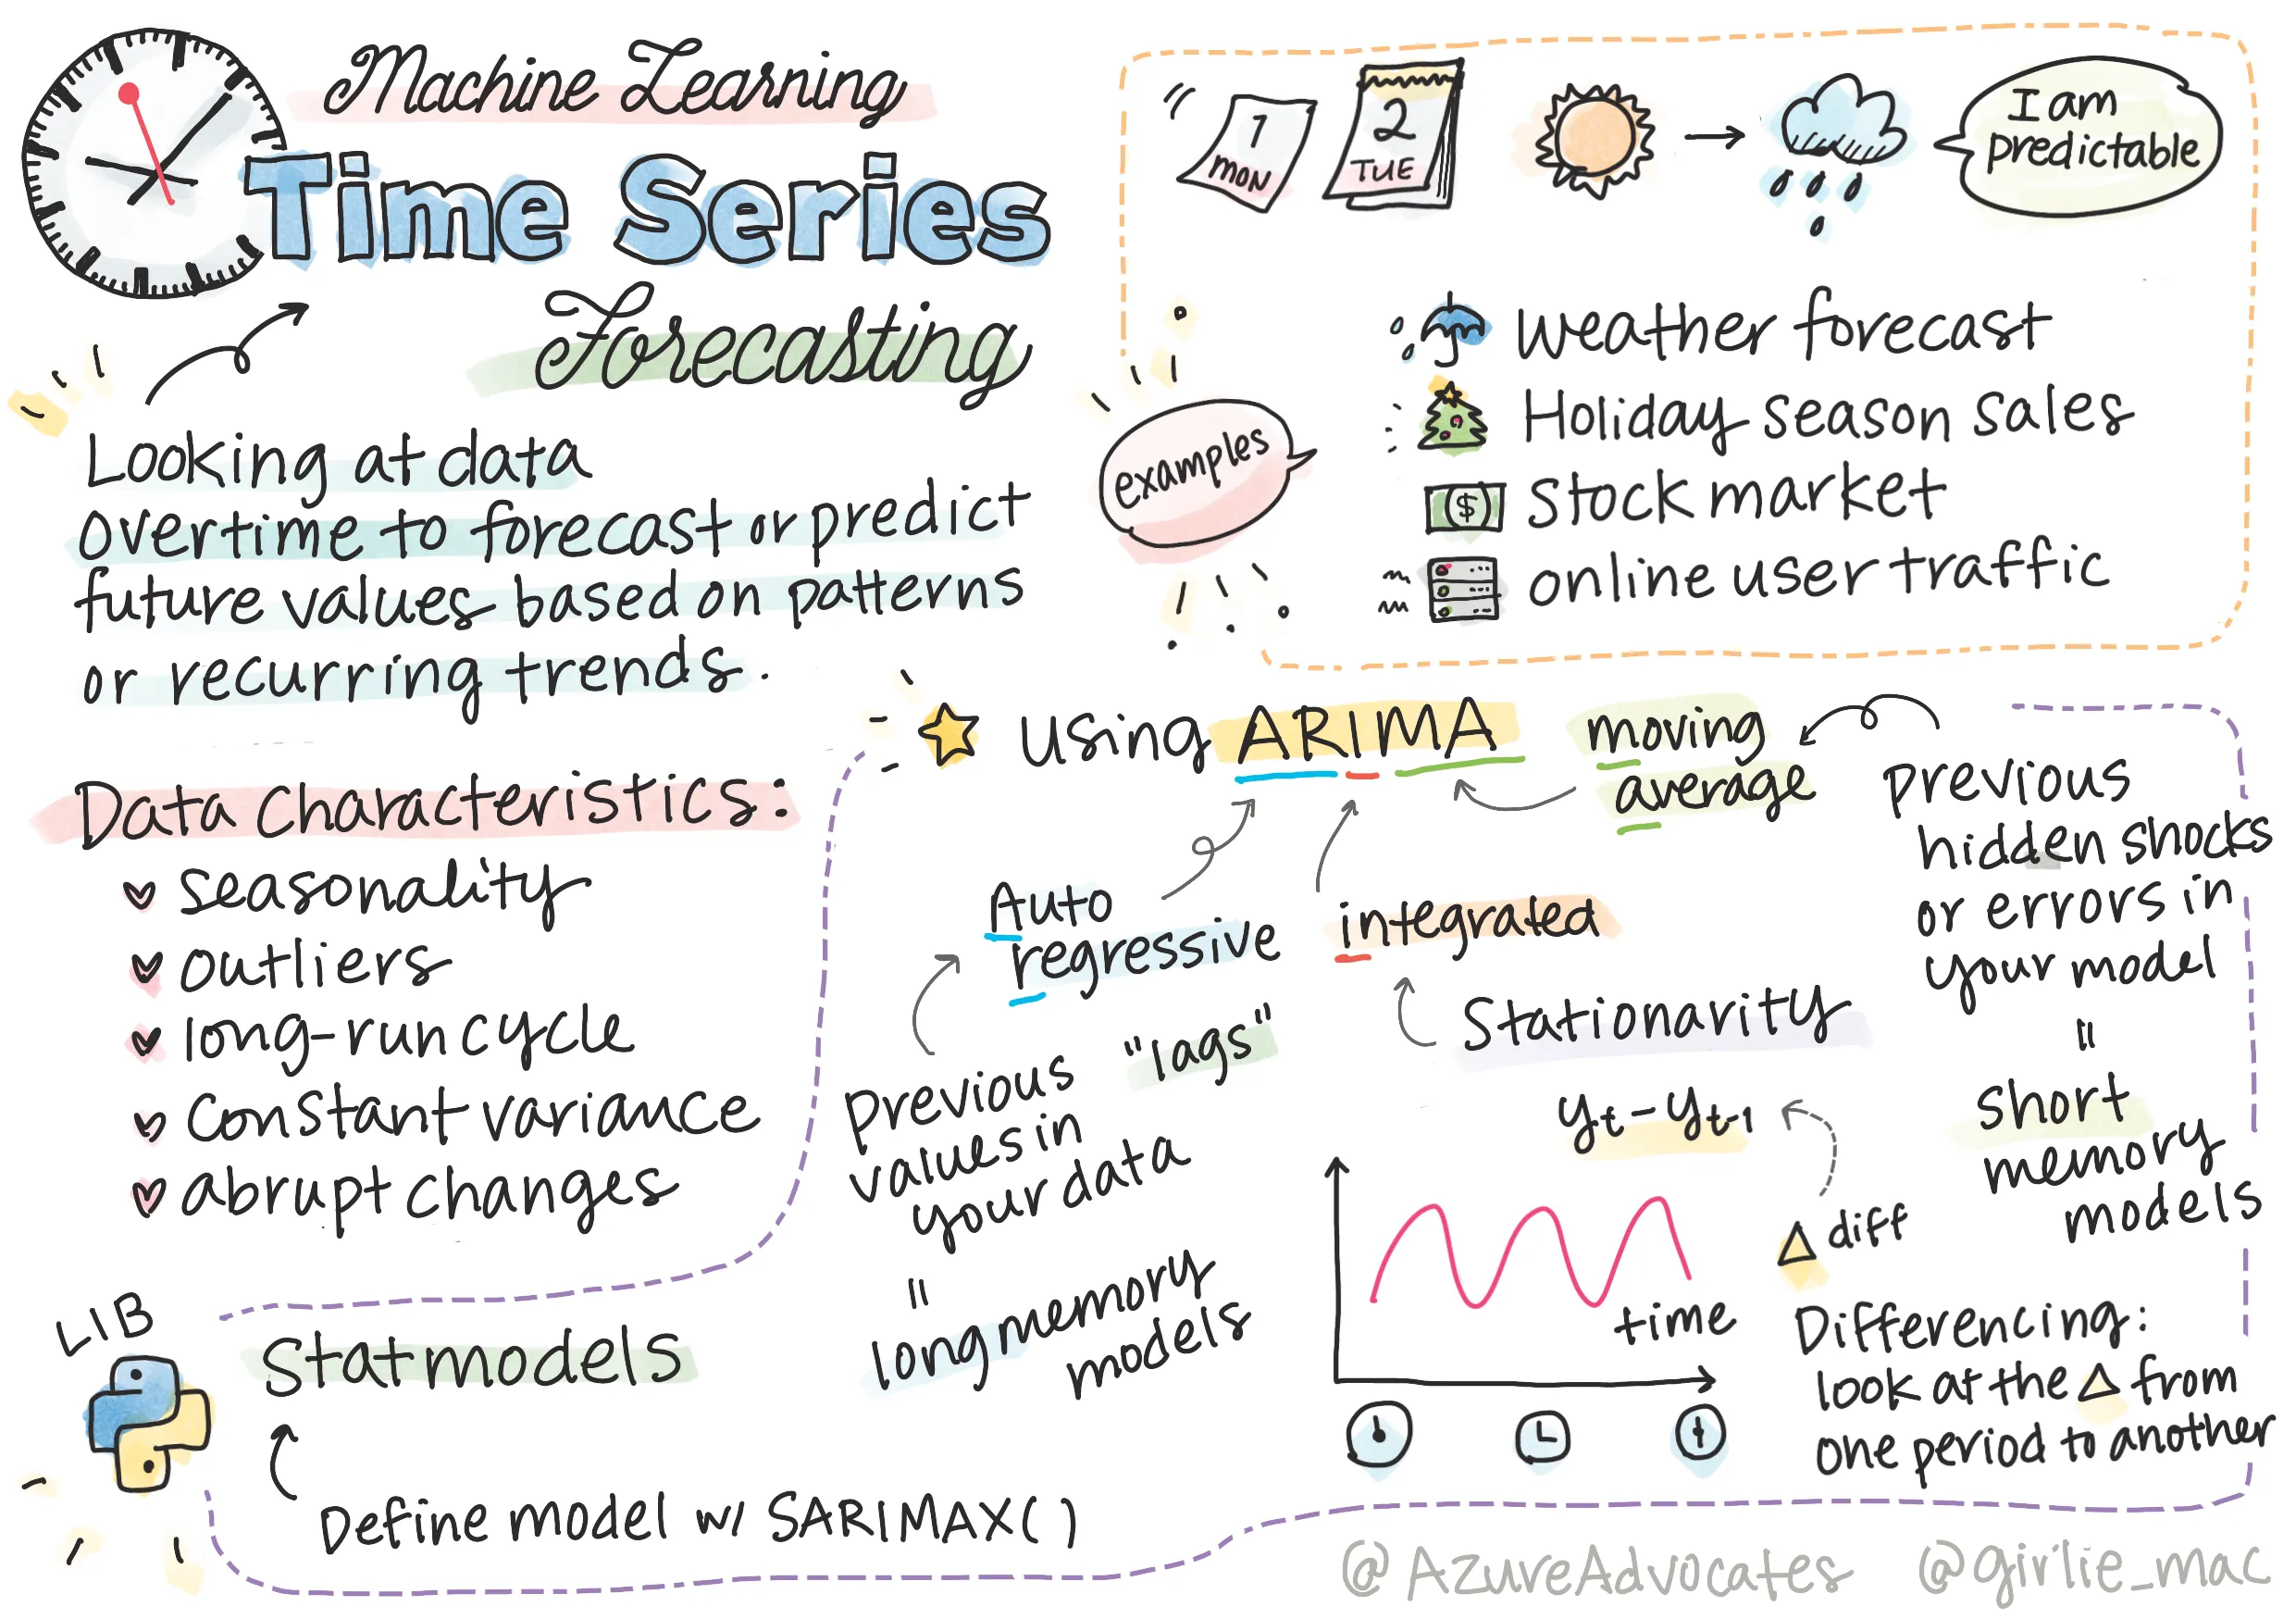 Machine Learning
Time Series
Forecasting
Looking at data
overtime to forecast or predict
future values based on patterns
or recurring trends.
Data Characteristics:
seasonality
outliers
long-run cycle
Constant variance
abrupt changes
LIB
Statmodels
Define model w/ SARIMAX()
1
MON
2
TUE
I am
predictable
examples
weather forecast
Holiday season sales
$
stock market
online user traffic
using ARIMA
moving
average
previous
hidden shocks
or errors in
your model
=
short
memory
models
Auto
regressive
Previous "lags"
values in
your data
=
long memory
models
integrated
Stationarity
yt - yt-1
△ diff
time
Differencing:
look at the △ from
one period to another
@AzureAdvocates @girlie_mac